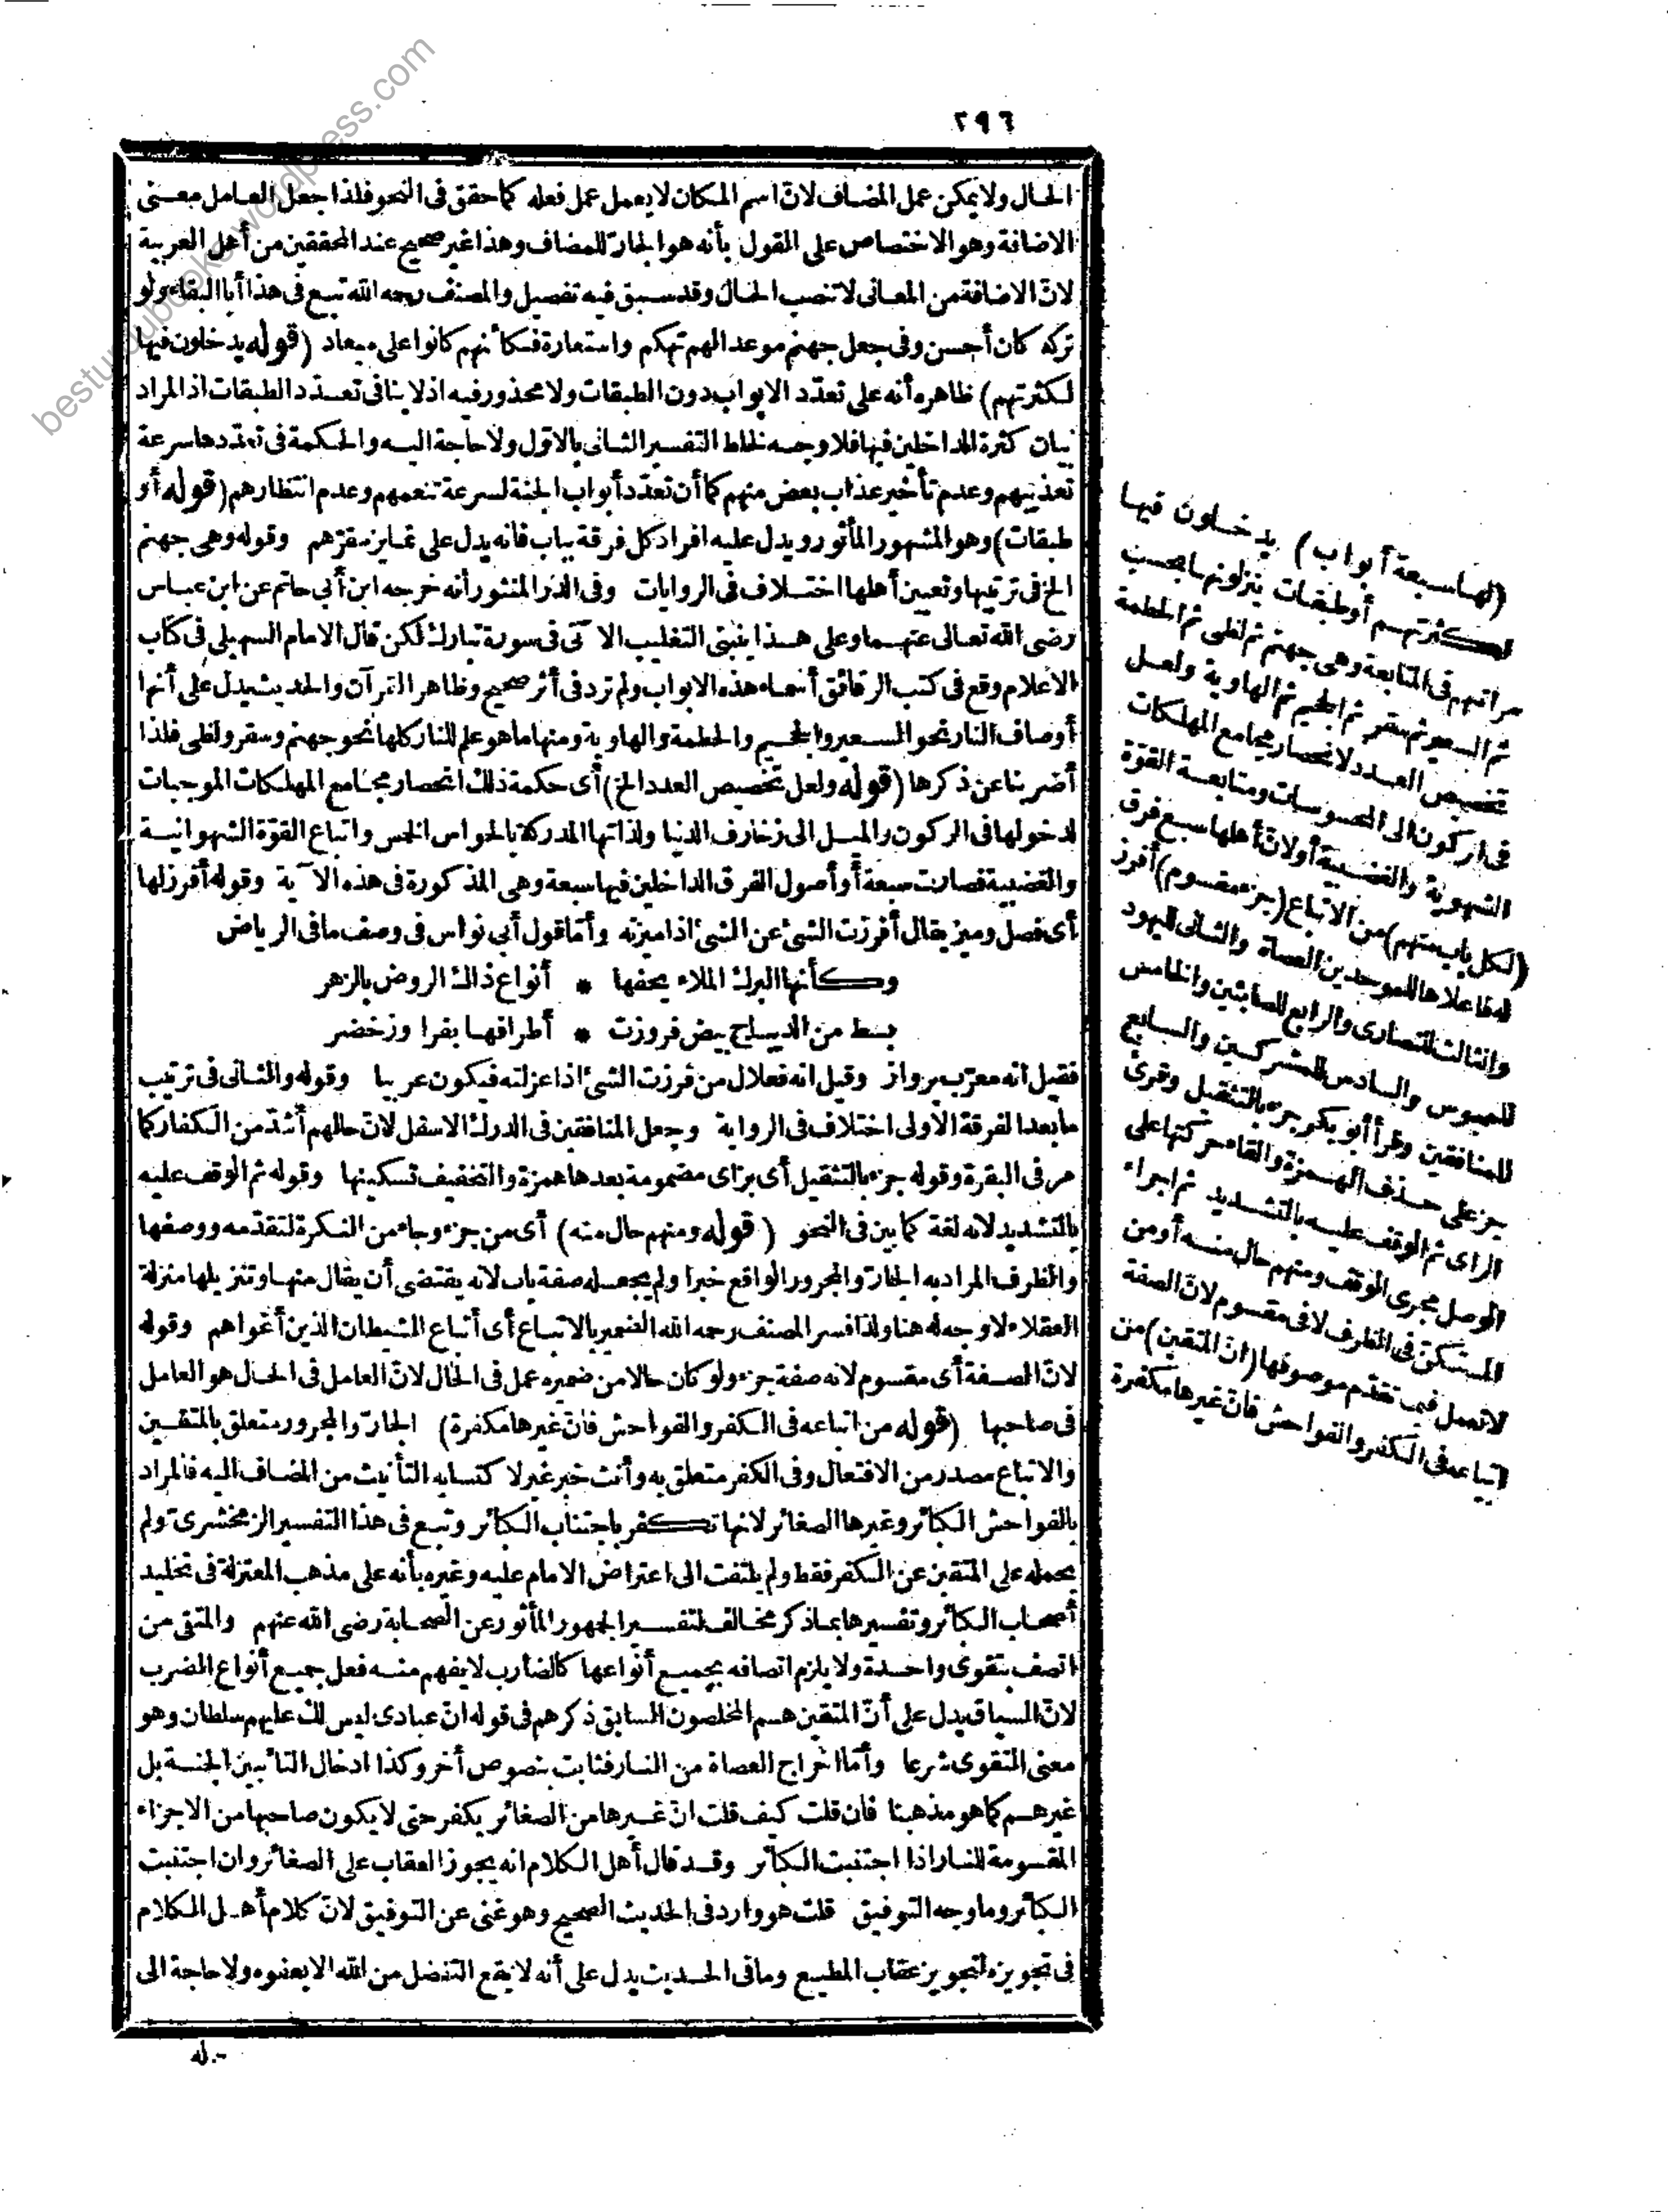 ٢٩٦
الحال ولا يمكن عمل المضاف لانّ اسم المكان لا يعمل عمل فعله كما حقق في النحو فلذا جعل العامل معنى
الاضافة وهو الاختصاص على القول بأنه هو الجارّ للمضاف وهذا غير صحيح عند المحققين من أهل العربية
لانّ الاضافة من المعاني لا تنصب الحال وقد سبق فيه تفصيل والمصنف رحمه الله تبع في هذا أبا البقاء ولو
تركه كان أحسن وفي جعل جهنم موعدا لهم تهكم واستعارة فكأنهم كانوا على ميعاد (قوله يدخلون فيها
لكثرتهم) ظاهره أنه على تعدّد الابواب دون الطبقات ولا محذور فيه اذ لا ينافي تعدّد الطبقات اذ المراد
بيان كثرة الداخلين فيها فلا وجه لخلط التفسير الثاني بالاوّل ولا حاجة اليه والحكمة في تعدّدها سرعة
تعذيبهم وعدم تأخير عذاب بعض منهم كما أن تعدّد أبواب الجنة لسرعة تنعمهم وعدم انتظارهم (قوله أو
طبقات) وهو المشهور المأثور ويدل عليه افراد كل فرقة بباب فانه يدل على تمايز مقرّهم وقوله وهي جهنم
الخ في ترتيبها وتعيين أهلها اختلاف في الروايات وفي الدّر المنثور أنه خرجه ابن أبي حاتم عن ابن عباس
رضي الله تعالى عنهما وعلى هذا ينبني التغليب الآتي في سورة تبارك لكن قال الامام السهيلي في كتاب
الاعلام وقع في كتب الرقائق أسماء هذه الابواب ولم ترد في أثر صحيح وظاهر القرآن والحديث يدل على أنها
أوصاف النار نحو السعير والجحيم والحطمة والهاوية ومنها ما هو علم للنار كلها نحو جهنم وسقر ولظى فلذا
أضربنا عن ذكرها (قوله ولعل تخصيص العدد الخ) أي حكمة ذلك انحصار مجامع المهلكات الموجبات
لدخولها في الركون والميل الى زخارف الدنيا ولذاتها المدركة بالحواس الخمس واتباع القوّة الشهوانية
والغضبية فصارت سبعة أو أصول الفرق الداخلين فيها سبعة وهي المذكورة في هذه الآية وقوله أفرز لها
أي فصل وميز يقال أفرزت الشئ عن الشئ اذا ميزته وأمّا قول أبي نواس في وصف ما في الرياض
وكأنها البرك الملاء يحفها * أنواع ذاك الروض بالزهر
بسط من الديباج بيض فروزت * أطرافها بفراوز خضر
فقيل انه معرّب برواز وقيل انه فعلال من فرزت الشئ اذا عزلته فيكون عربيا وقوله والثاني في ترتيب
ما بعد الفرقة الاولى اختلاف في الرواية وجعل المنافقين في الدرك الاسفل لانّ حالهم أشدّ من الكفار كما
مر في البقرة وقوله جزء بالتثقيل أي بزاي مضمومة بعدها همزة والتخفيف تسكينها وقوله ثم الوقف عليه
بالتشديد لانه لغة كما بين في النحو (قوله ومنهم حال منه) أي من جزء وجاء من النكرة لتقدّمه ووصفها
والظرف المراد به الجارّ والمجرور الواقع خبرا ولم يجعله صفة باب لانه يقتضي أن يقال منها وتنزيلها منزلة
العقلاء لا وجه له هنا ولذا فسر المصنف رحمه الله الضمير بالاتباع أي أتباع الشيطان الذين أغواهم وقوله
لانّ الصفة أي مقسوم لانه صفة جزء ولو كان حالا من ضميره عمل في الحال لانّ العامل في الحال هو العامل
في صاحبها (قوله من اتباعه في الكفر والفواحش فانّ غيرها مكفرة) الجارّ والمجرور متعلق بالمتقين
والاتباع مصدر من الافتعال وفي الكفر متعلق به وأنث خبر غير لاكتسابه التأنيث من المضاف اليه فالمراد
بالفواحش الكبائر وغيرها الصغائر لانها تكفر باجتناب الكبائر وتبع في هذا التفسير الزمخشري ولم
يحمله على المتقين عن الكفر فقط ولم يلتفت الى اعتراض الامام عليه وغيره بأنه على مذهب المعتزلة في تخليد
أصحاب الكبائر وتفسيرها بما ذكر مخالف لتفسير الجمهور المأثور عن الصحابة رضي الله عنهم والمتقى من
اتصف بتقوى واحدة ولا يلزم اتصافه بجميع أنواعها كالضارب لا يفهم منه فعل جميع أنواع الضرب
لانّ السياق يدل على أنّ المتقين هم المخلصون السابق ذكرهم في قوله انّ عبادي ليس لك عليهم سلطان وهو
معنى التقوى شرعا وأمّا اخراج العصاة من النار فثابت بنصوص أخر وكذا ادخال التائبين الجنة بل
غيرهم كما هو مذهبنا فان قلت كيف قلت انّ غيرها من الصغائر يكفر حتى لا يكون صاحبها من الاجزاء
المقسومة للنار اذا اجتنبت الكبائر وقد قال أهل الكلام انه يجوز العقاب على الصغائر وان اجتنبت
الكبائر وما وجه التوفيق قلت هو وارد في الحديث الصحيح وهو غنى عن التوفيق لانّ كلام أهل الكلام
في تجويزه لتجويز عقاب المطيع وما في الحديث يدل على أنه لا يقع التفضل من الله الا بعفوه ولا حاجة الى
(لها سبعة أبواب) يدخلون فيها
لكثرتهم أو طبقات ينزلونها بحسب
مراتبهم في المتابعة وهي جهنم ثم لظى ثم الحطمة
ثم السعير ثم سقر ثم الجحيم ثم الهاوية ولعل
تخصيص العدد لانحصار مجامع المهلكات
في الركون الى المحسوسات ومتابعة القوّة
الشهوية والغضبية أو لانّ أهلها سبع فرق
(لكل باب منهم) من الاتباع (جزء مقسوم) أفرز
له فأعلاها للموحدين العصاة والثاني لليهود
والثالث للنصارى والرابع للصابئين والخامس
للمجوس والسادس للمشركين والسابع
للمنافقين وقرأ أبو بكر جزء بالتثقيل وقرئ
جز على حذف الهمزة والقاء حركتها على
الزاي ثم الوقف عليه بالتشديد ثم اجراء
الوصل مجرى الوقف ومنهم حال منه أو من
المستكنّ في الظرف لا في مقسوم لانّ الصفة
لا تعمل فيما تقدّم موصوفها (انّ المتقين) من
اتباعه في الكفر والفواحش فانّ غيرها مكفرة
besturdubooks.wordpress.com